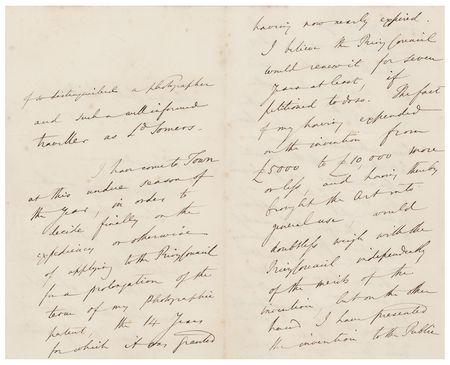 of so distinguished a photographer
and such a well informed
traveller as Ld. Somers.
I have come to Town
at this undue season of
the Year, in order to
decide finally on the
expediency or otherwise
of applying to the Privy Council
for a prolongation of the
term of my Photographic
patent, the 14 Years
for which it was granted
having now nearly expired.
I believe the Privy Council
would renew it for seven
Years at least, if
petitioned to do so. The fact
of my having expended
on the invention from
£5000 to £10 000 more
or less, and having thereby
brought the Art into
general use would
doubtless weigh with the
Privy Council independently
of the merits of the
invention, but on the other
hand I have presented
the invention to the Public